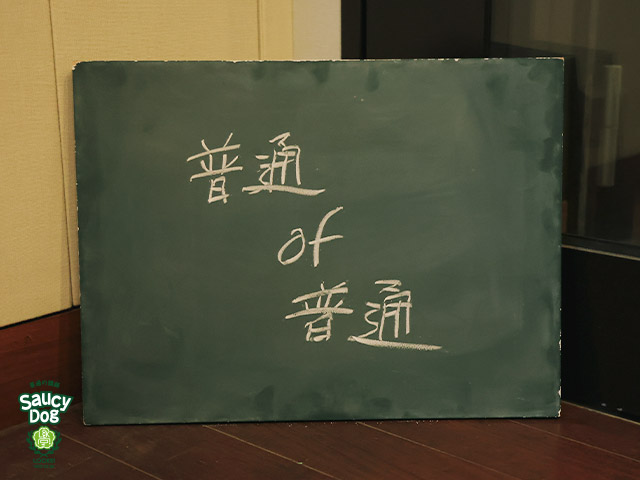 普通
of
普通
SAUCY
DOG